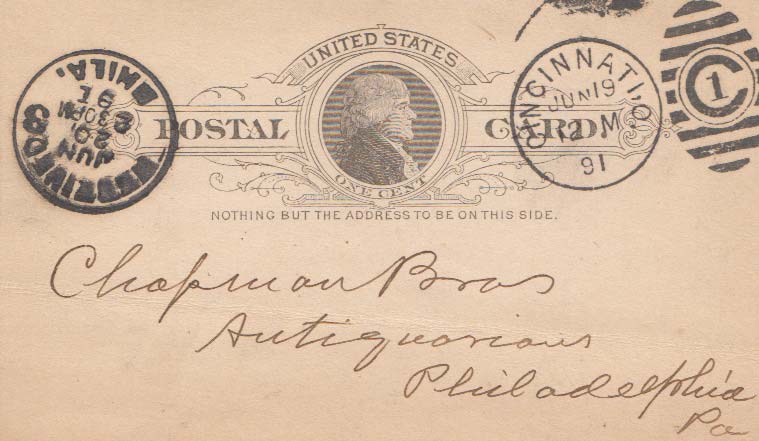 UNITED STATES
POSTAL CARD
ONE CENT
NOTHING BUT THE ADDRESS TO BE ON THIS SIDE.
CINCINNATI, O.
JUN 19
12 M
91
C 1
RECEIVED
3
JUN
20
2 30 PM
91
PHILA.
Chapman Bros
Antiquarians
Philadelphia
Pa